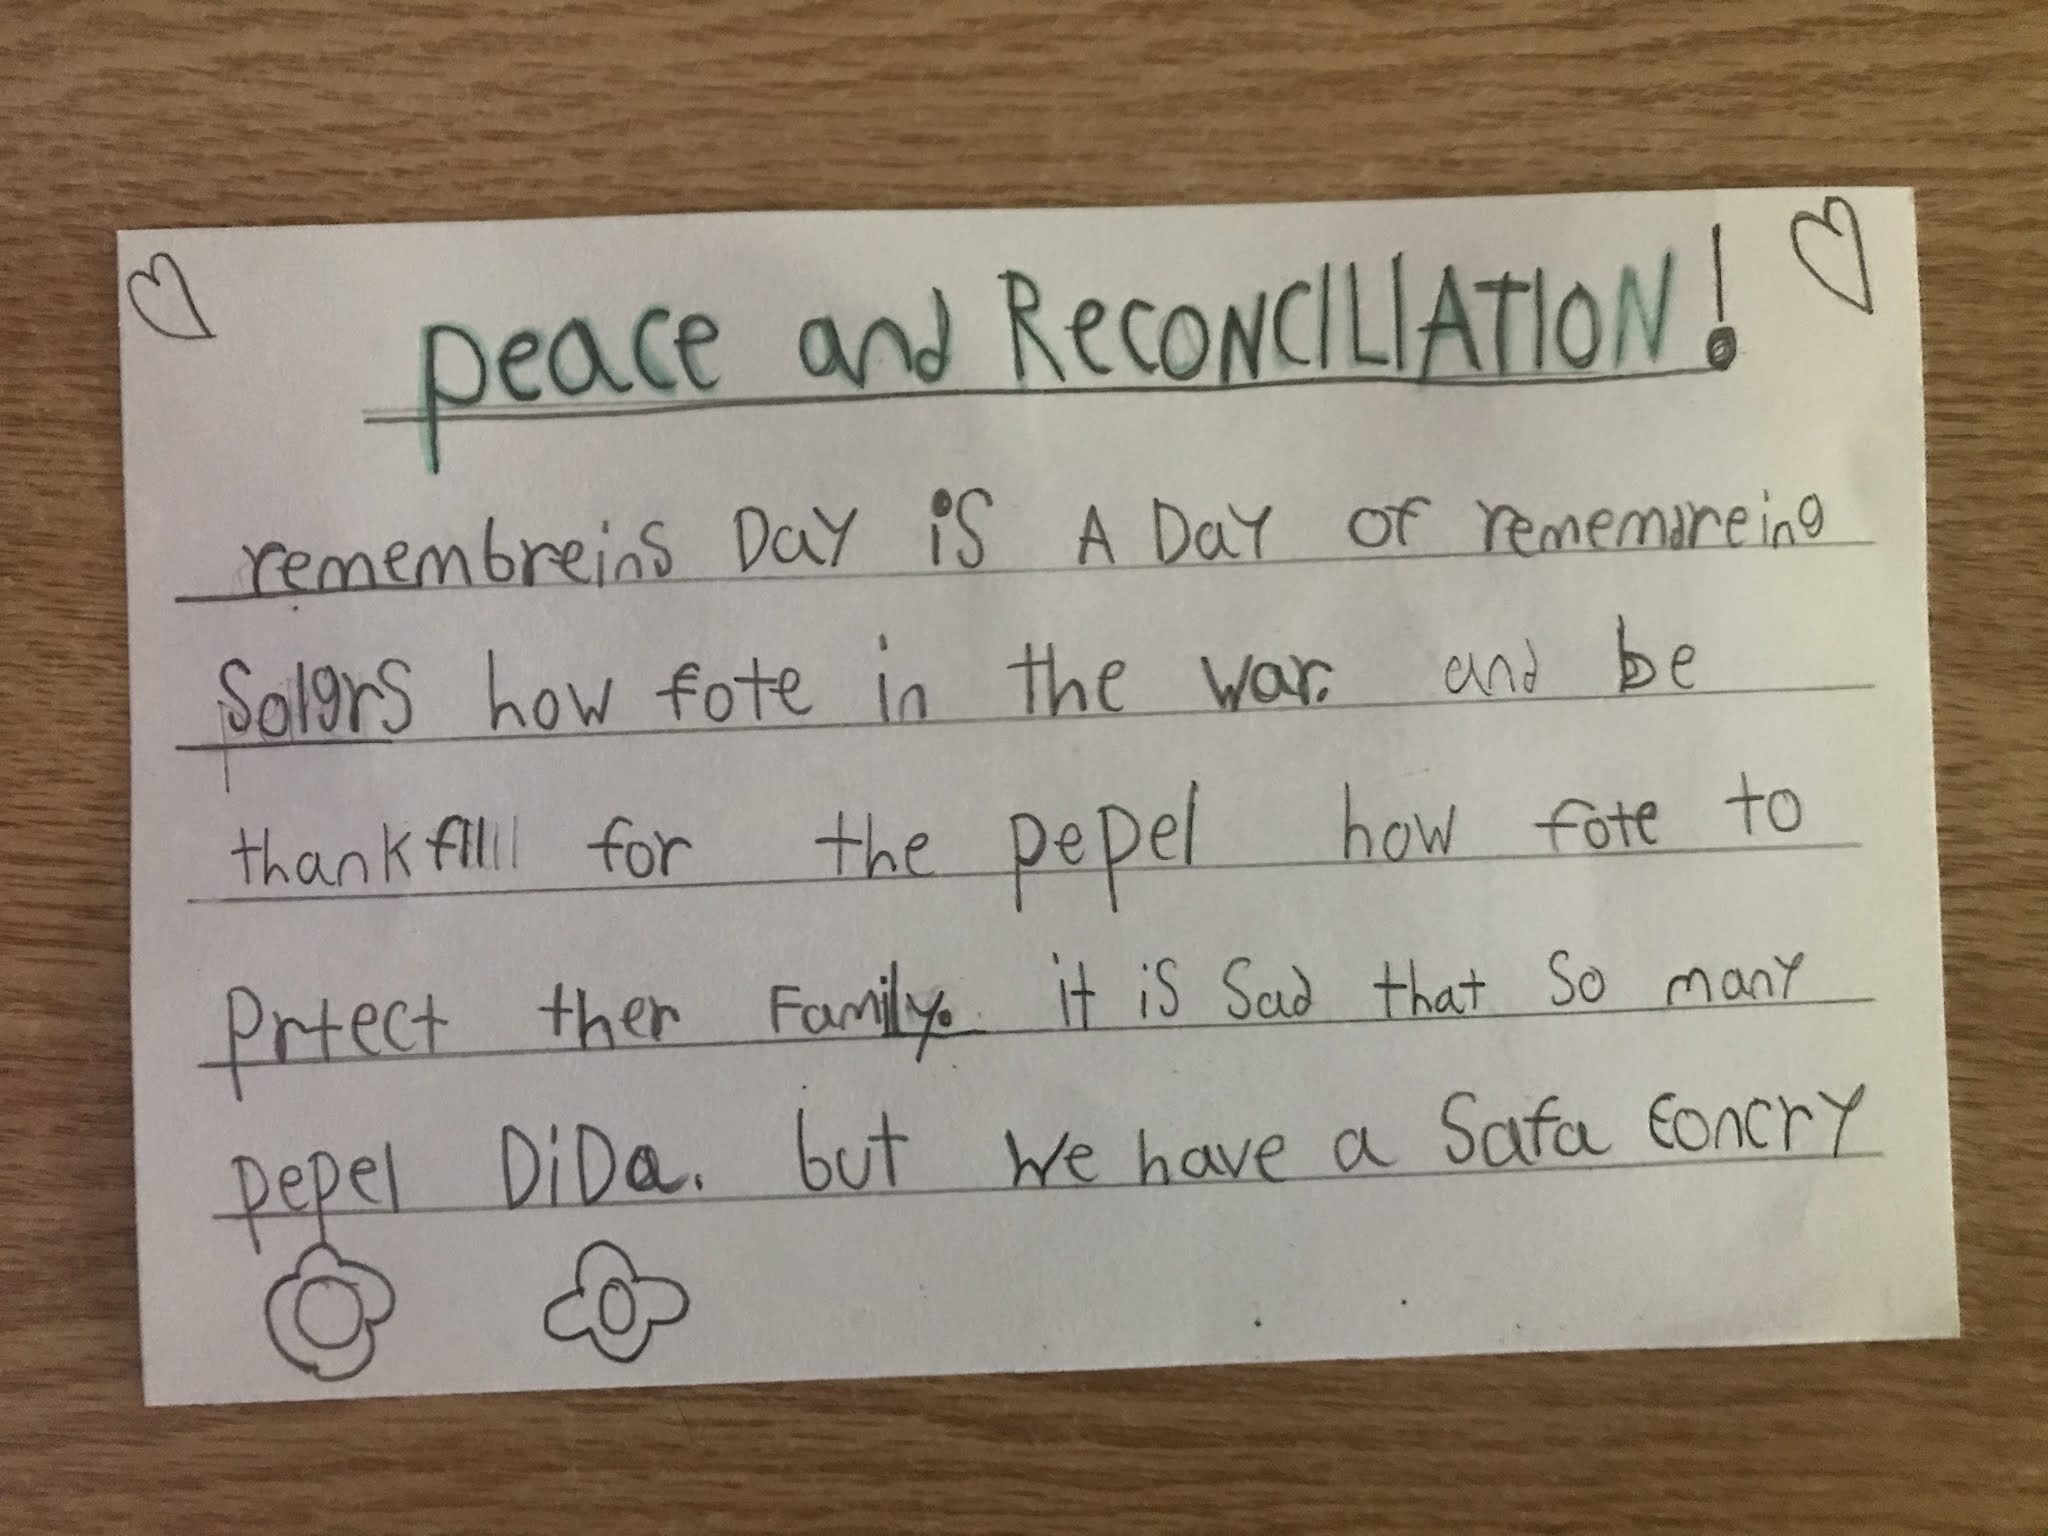 peace and ReCONCILIATION!
remembreins Day is A Day of rememdreing
Solgrs how fote in the war. and be
thankfllll for the pepel how fote to
Prtect ther Family. it is Sad that So many
pepel DiDa. but we have a Safa concry